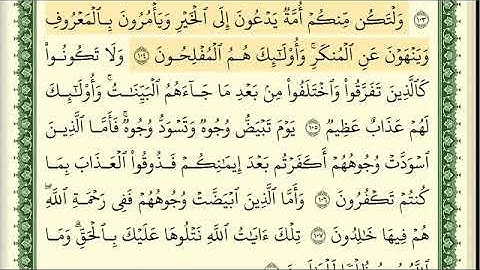 ١٠٣ وَلْتَكُن مِّنكُمْ أُمَّةٌ يَدْعُونَ إِلَى الْخَيْرِ وَيَأْمُرُونَ بِالْمَعْرُوفِ
وَيَنْهَوْنَ عَنِ الْمُنكَرِ ۚ وَأُولَٰئِكَ هُمُ الْمُفْلِحُونَ ١٠٤ وَلَا تَكُونُوا
كَالَّذِينَ تَفَرَّقُوا وَاخْتَلَفُوا مِن بَعْدِ مَا جَاءَهُمُ الْبَيِّنَاتُ ۚ وَأُولَٰئِكَ
لَهُمْ عَذَابٌ عَظِيمٌ ١٠٥ يَوْمَ تَبْيَضُّ وُجُوهٌ وَتَسْوَدُّ وُجُوهٌ ۚ فَأَمَّا الَّذِينَ
اسْوَدَّتْ وُجُوهُهُمْ أَكَفَرْتُم بَعْدَ إِيمَانِكُمْ فَذُوقُوا الْعَذَابَ بِمَا
كُنتُمْ تَكْفُرُونَ ١٠٦ وَأَمَّا الَّذِينَ ابْيَضَّتْ وُجُوهُهُمْ فَفِي رَحْمَةِ اللَّهِ ۖ
هُمْ فِيهَا خَالِدُونَ ١٠٧ تِلْكَ آيَاتُ اللَّهِ نَتْلُوهَا عَلَيْكَ بِالْحَقِّ ۗ وَمَا